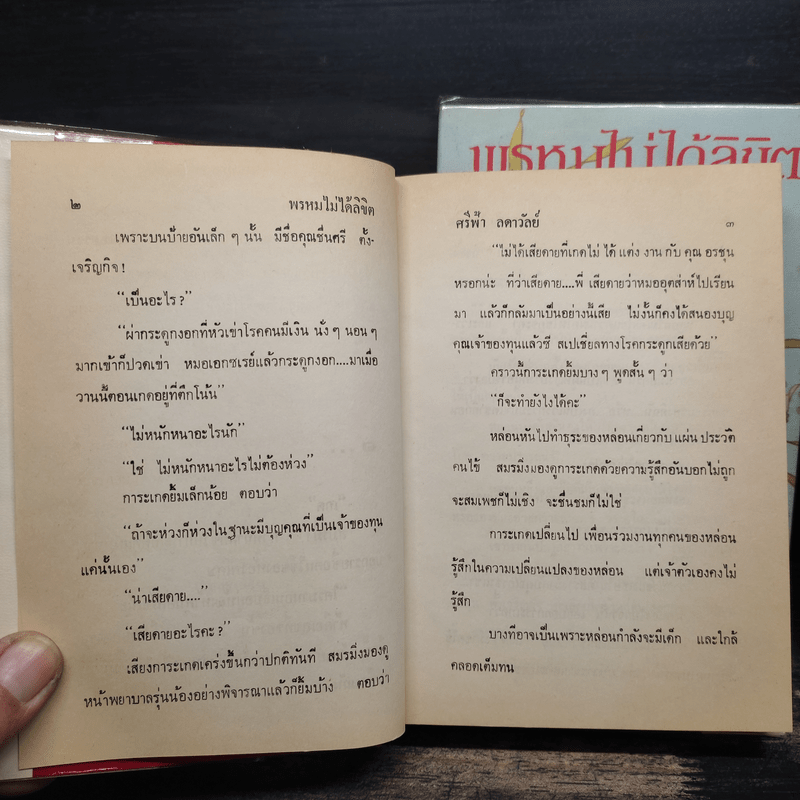 พรหมไม่ได้ลิขิต
๒ พรหมไม่ได้ลิขิต
เพราะบนป้ายอันเล็ก ๆ นั้น มีชื่อคุณชื่นศรี ตั้ง-
เจริญกิจ !
“เป็นอะไร ?”
“ผ่ากระดูกงอกที่หัวเข่าโรคคนมีเงิน นั่ง ๆ นอน ๆ
มากเข้าก็ปวดเข่า หมอเอกซเรย์แล้วกระดูกงอก....มาเมื่อ
วานนี้ตอนเกดอยู่ที่ตึกโน้น”
“ไม่หนักหนาอะไรนัก”
“ใช่ ไม่หนักหนาอะไรไม่ต้องห่วง”
การะเกดยิ้มเล็กน้อย ตอบว่า
“ถ้าจะห่วงก็ห่วงในฐานะมีบุญคุณที่เป็นเจ้าของทุน
แค่นั้นเอง”
“น่าเสียดาย....”
“เสียดายอะไรคะ ?”
เสียงการะเกดเคร่งขึ้นกว่าปกติทันที สมรมิ่งมองดู
หน้าพยาบาลรุ่นน้องอย่างพิจารณาแล้วก็ยิ้มบ้าง ตอบว่า
ศรีฟ้า ลดาวัลย์ ๓
“ไม่ได้เสียดายที่เกดไม่ ได้ แต่ง งาน กับ คุณ อรชุน
หรอกน่ะ ที่ว่าเสียดาย....พี่ เสียดายว่าหมออุตส่าห์ไปเรียน
มา แล้วก็กลับมาเป็นอย่างนี้เสีย ไม่งั้นก็คงได้สนองบุญ
คุณเจ้าของทุนแล้วซี สเปเชี่ยลทางโรคกระดูกเสียด้วย”
คราวนี้การะเกดยิ้มบาง ๆ พูดสั้น ๆ ว่า
“ก็จะทำยังไงได้คะ”
หล่อนหันไปทำธุระของหล่อนเกี่ยวกับ แผ่น ประวัติ
คนไข้ สมรมิ่งมองดูการะเกดด้วยความรู้สึกอันบอกไม่ถูก
จะสมเพชก็ไม่เชิง จะชื่นชมก็ไม่ใช่
การะเกดเปลี่ยนไป เพื่อนร่วมงานทุกคนของหล่อน
รู้สึกในความเปลี่ยนแปลงของหล่อน แต่เจ้าตัวเองคงไม่
รู้สึก
บางทีอาจเป็นเพราะหล่อนกำลังจะมีเด็ก และใกล้
คลอดเต็มทน